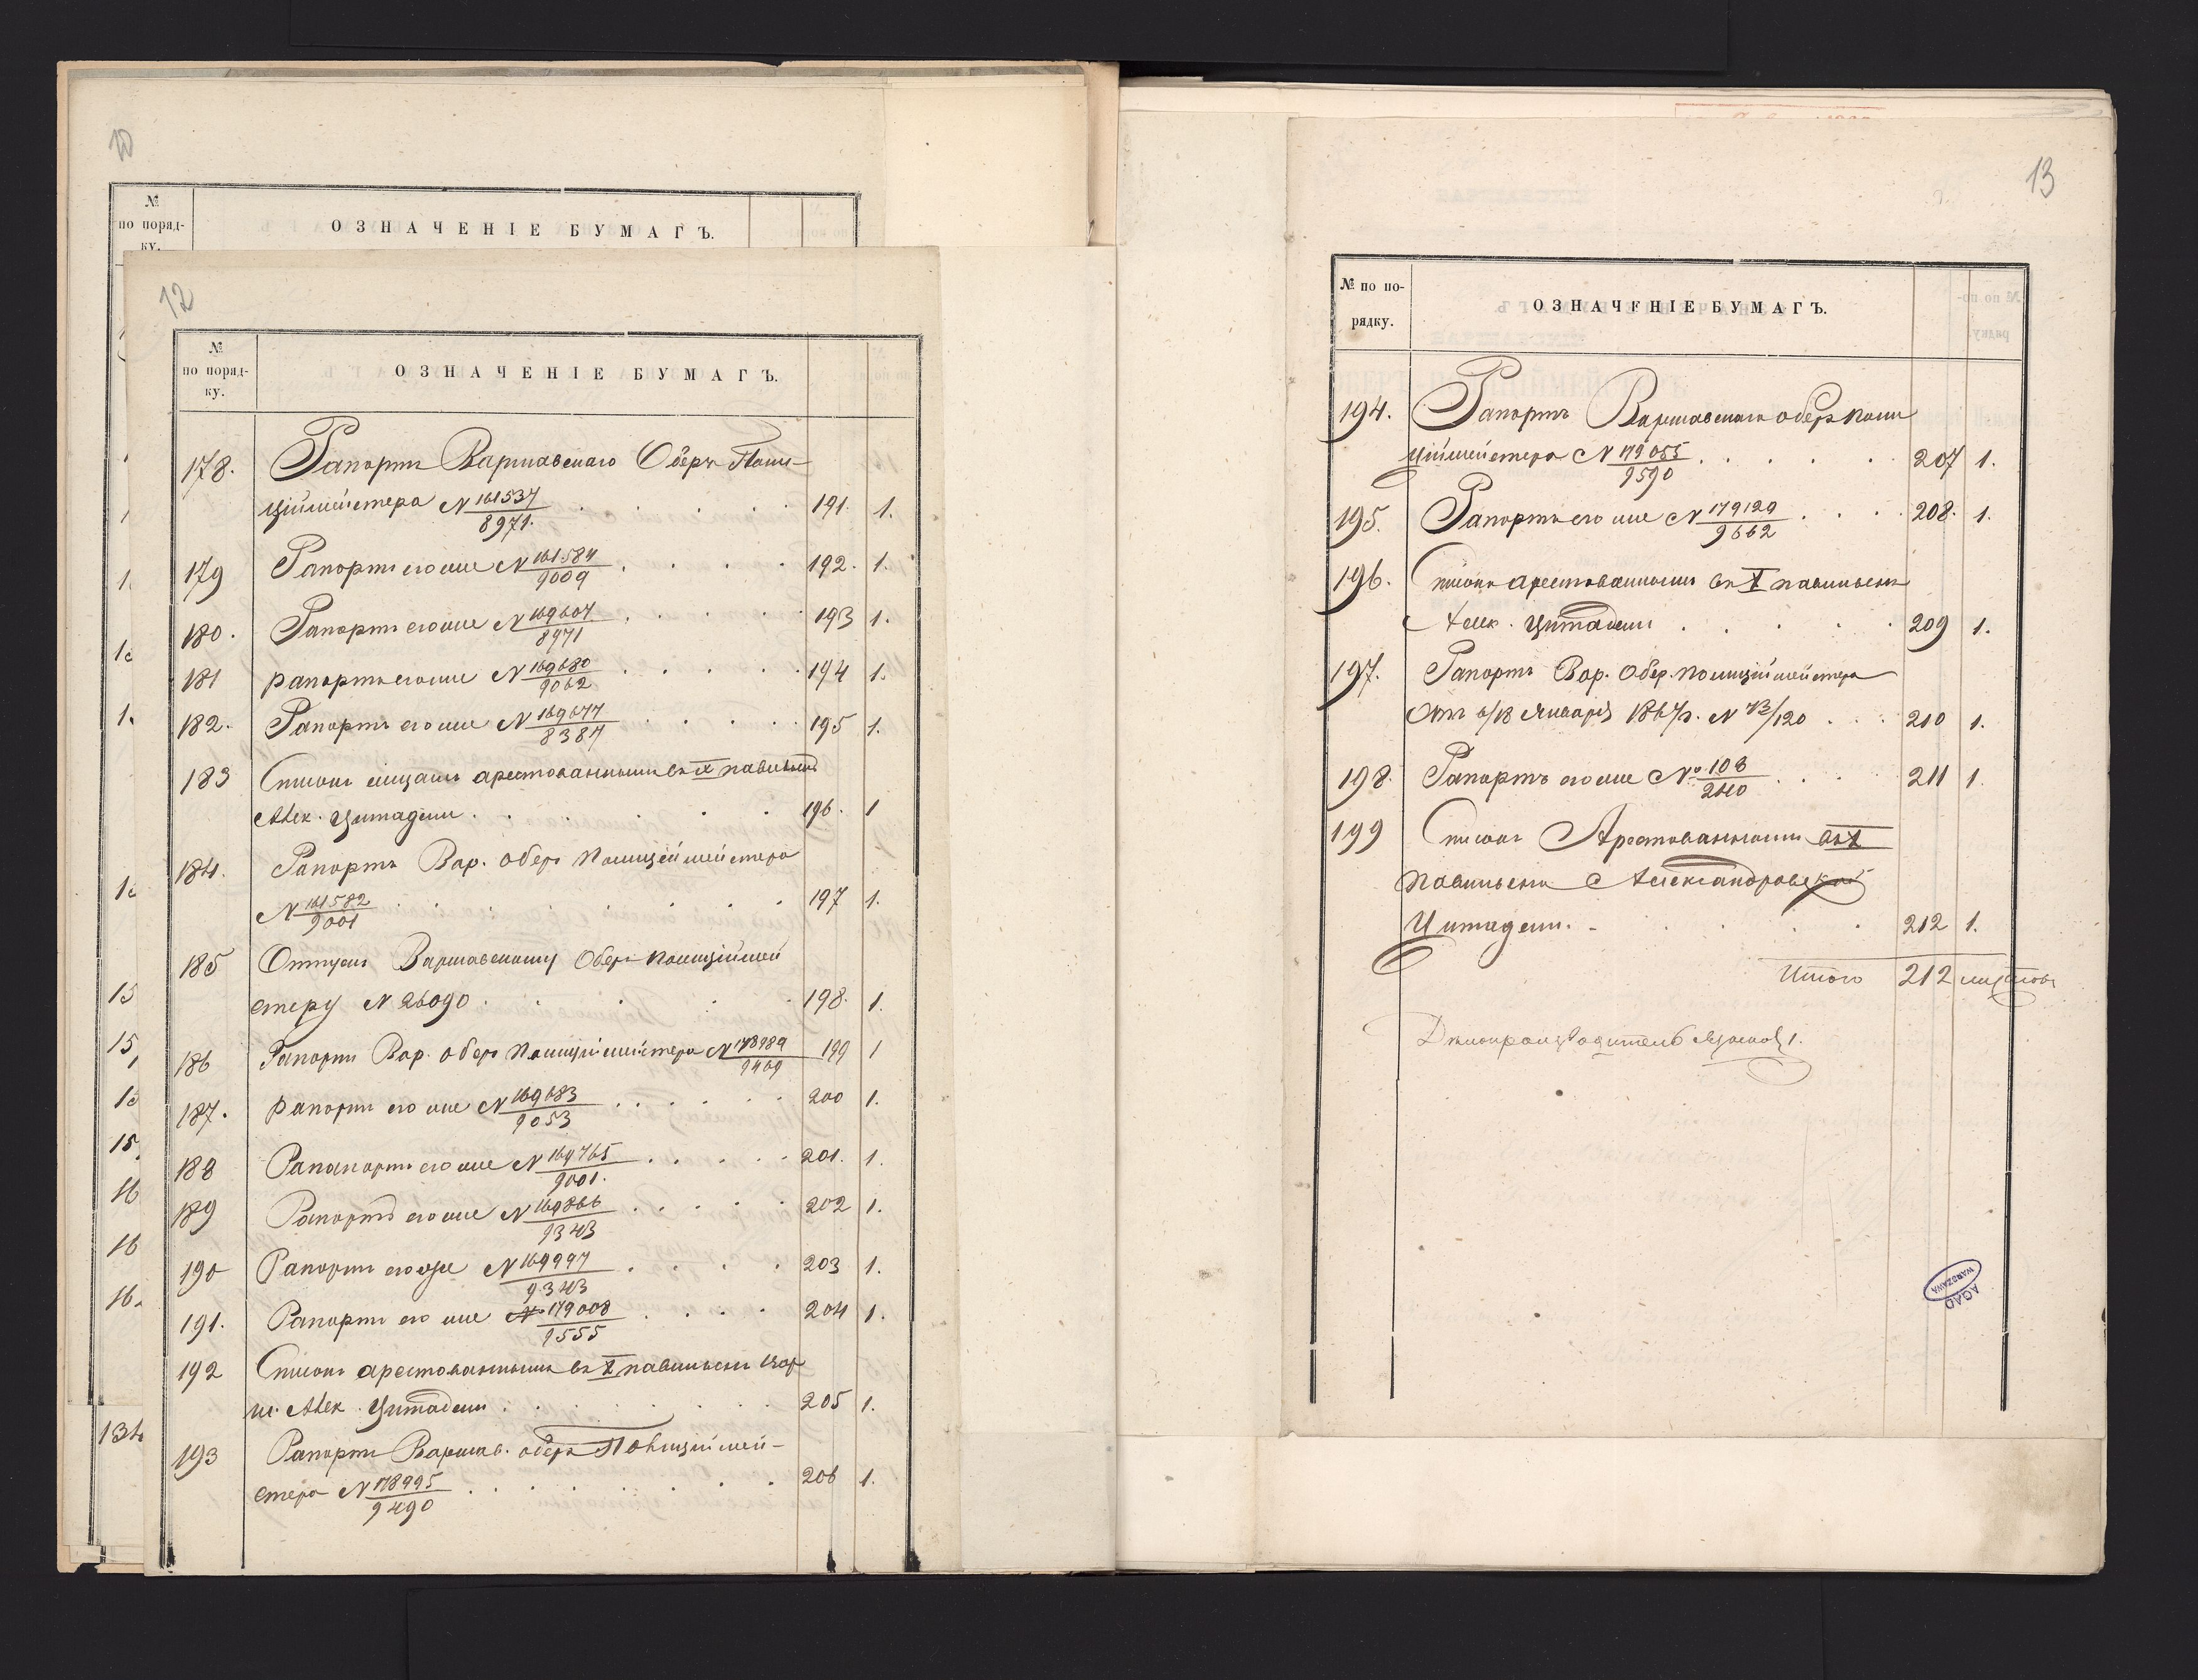 10
№
по поряд-
ку.
ОЗНАЧЕНІЕ БУМАГЪ.
12
№
по поряд-
ку.
ОЗНАЧЕНІЕ БУМАГЪ.
178. Рапортъ Варшавскаго Оберъ Поли-
ціймейстера N 161537/8971. 191. 1.
179 Рапортъ его же N 161584/9009 192. 1.
180. Рапортъ его же N 169607/8971 193 1.
181 рапортъ его же N 169680/9062 194 1.
182. Рапортъ его же N 169677/8387 195 1.
183 Списокъ лицамъ арестованнымъ въ X павильонѣ
Алек. Цитадели 196. 1
184. Рапортъ Вар. Оберъ Полицеймейстера
N 161582/9001 197 1.
185 Отпускъ Варшавскому Оберъ Полицiймей
стеру N 26090 198. 1.
186 Рапортъ Вар. Оберъ Полицiймейстера N 178989/9469 199 1
187. рапортъ его же N 169683/9053 200 1.
188 Рапапортъ его же N 169765/9001. 201. 1.
189 Рапортъ его же N 169866/9343 202 1.
190 Рапортъ его же N 169997/9343 203 1.
191. Рапортъ его же N 179008/9555 204 1.
192 Списокъ арестованнымъ въ X павильонѣ Вар
ш. Алек. Цитадели 205 1.
193 Рапортъ Варшав. оберъ Полицiймей-
стера N 178995/9490 206 1.
134
13
№ по по-
рядку.
ОЗНАЧЕНІЕ БУМАГЪ.
194. Рапортъ Варшавскаго оберъ поли
ціймейстера N 179055/9590 207 1.
195. Рапортъ его же N 179129/9662 208. 1.
196. Списокъ арестованнымъ въ X павильонѣ
Алек. Цитадели 209 1.
197. Рапортъ Вар. Обер. Полиціймейстера
Отъ 6/18 Января 1867 г. N 73/120 210 1.
198. Рапортъ его же № 108/240 211 1.
199 Списокъ Арестованнымъ въ X
павильонѣ Александровской
Цитадели. 212 1.
Итого 212 листовъ
Дѣлопроизводитель
AGAD
WARSZAWA